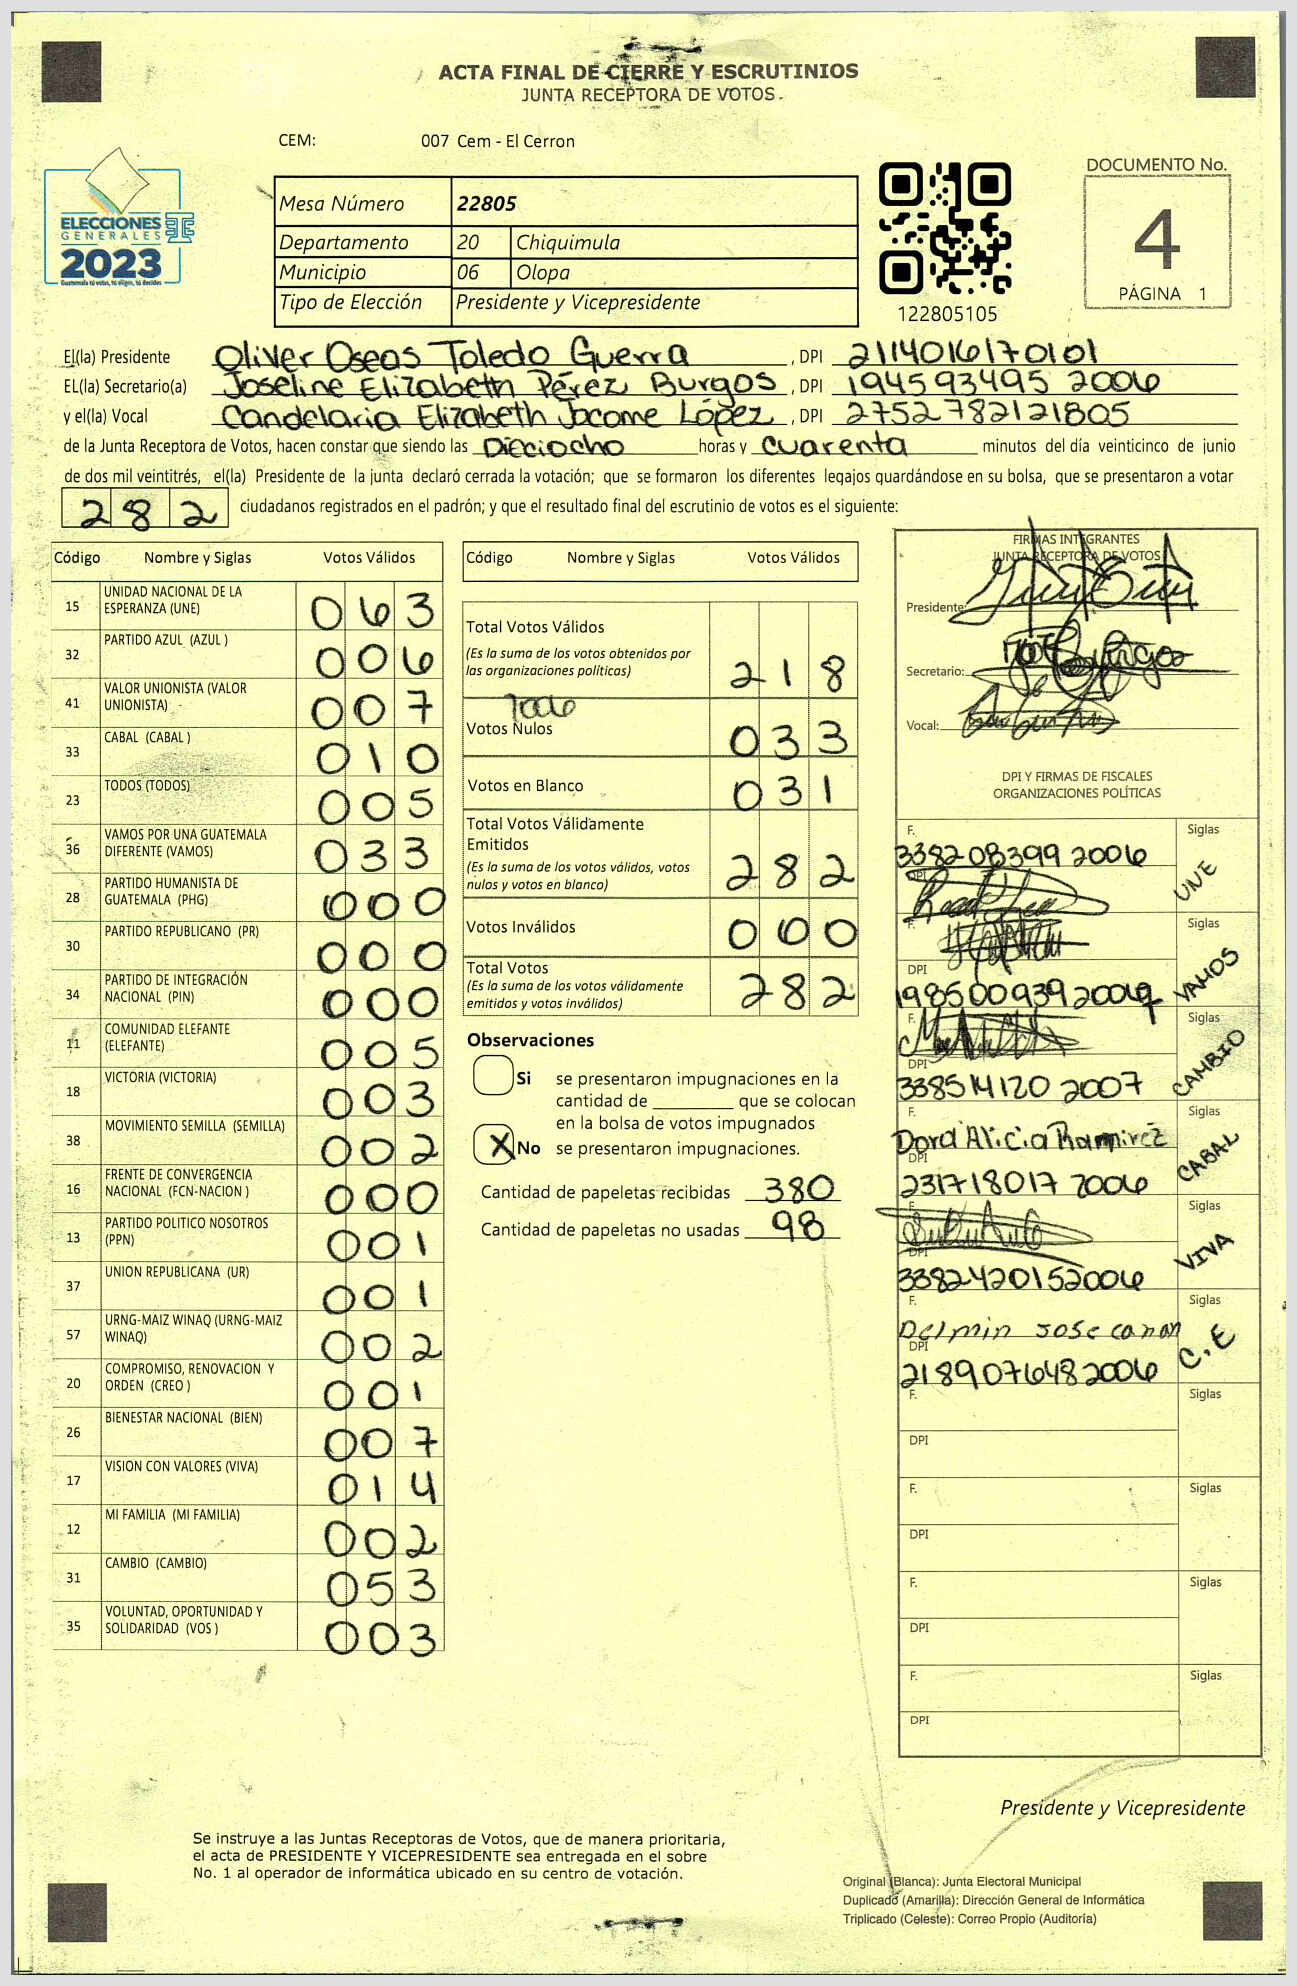 ACTA FINAL DE CIERRE Y ESCRUTINIOS
JUNTA RECEPTORA DE VOTOS
CEM: 007 Cem - El Cerron
ELECCIONES
GENERALES
2023
Guatemala tú votas, tú eliges, tú decides
Mesa Número 22805
Departamento 20 Chiquimula
Municipio 06 Olopa
Tipo de Elección Presidente y Vicepresidente
122805105
DOCUMENTO No.
4
PÁGINA 1
El(la) Presidente Oliver Oseas Toledo Guerra, DPI 2114016170101
EL(la) Secretario(a) Joseline Elizabeth Pérez Burgos, DPI 194593495 2006
y el(la) Vocal Candelaria Elizabeth Jacome López, DPI 2752782121805
de la Junta Receptora de Votos, hacen constar que siendo las Dieciocho horas y cuarenta minutos del día veinticinco de junio
de dos mil veintitrés, el(la) Presidente de la junta declaró cerrada la votación; que se formaron los diferentes legajos guardándose en su bolsa, que se presentaron a votar
282 ciudadanos registrados en el padrón; y que el resultado final del escrutinio de votos es el siguiente:
Código Nombre y Siglas Votos Válidos
15 UNIDAD NACIONAL DE LA
ESPERANZA (UNE) 063
32 PARTIDO AZUL (AZUL ) 006
41 VALOR UNIONISTA (VALOR
UNIONISTA) 007
33 CABAL (CABAL ) 010
23 TODOS (TODOS) 005
36 VAMOS POR UNA GUATEMALA
DIFERENTE (VAMOS) 033
28 PARTIDO HUMANISTA DE
GUATEMALA (PHG) 000
30 PARTIDO REPUBLICANO (PR) 000
34 PARTIDO DE INTEGRACIÓN
NACIONAL (PIN) 000
11 COMUNIDAD ELEFANTE
(ELEFANTE) 005
18 VICTORIA (VICTORIA) 003
38 MOVIMIENTO SEMILLA (SEMILLA) 002
16 FRENTE DE CONVERGENCIA
NACIONAL (FCN-NACION ) 000
13 PARTIDO POLITICO NOSOTROS
(PPN) 001
37 UNION REPUBLICANA (UR) 001
57 URNG-MAIZ WINAQ (URNG-MAIZ
WINAQ) 002
20 COMPROMISO, RENOVACION Y
ORDEN (CREO ) 001
26 BIENESTAR NACIONAL (BIEN) 007
17 VISION CON VALORES (VIVA) 014
12 MI FAMILIA (MI FAMILIA) 002
31 CAMBIO (CAMBIO) 053
35 VOLUNTAD, OPORTUNIDAD Y
SOLIDARIDAD (VOS ) 003
Código Nombre y Siglas Votos Válidos
Total Votos Válidos
(Es la suma de los votos obtenidos por
las organizaciones políticas) 218
Votos Nulos 033
Votos en Blanco 031
Total Votos Válidamente
Emitidos
(Es la suma de los votos válidos, votos
nulos y votos en blanco) 282
Votos Inválidos 000
Total Votos
(Es la suma de los votos válidamente
emitidos y votos inválidos) 282
Observaciones
Si se presentaron impugnaciones en la
cantidad de ________ que se colocan
en la bolsa de votos impugnados
X No se presentaron impugnaciones.
Cantidad de papeletas recibidas 380
Cantidad de papeletas no usadas 98
FIRMAS INTEGRANTES
JUNTA RECEPTORA DE VOTOS
Presidente:
Secretario:
Vocal:
DPI Y FIRMAS DE FISCALES
ORGANIZACIONES POLÍTICAS
F. Siglas
338208399 2006
DPI UNE
F. Siglas
DPI
198500939 2006 VAMOS
F. Siglas
DPI
338514120 2007 CAMBIO
F. Siglas
Dora Alicia Ramirez
DPI
231718017 2006 CABAL
F. Siglas
DPI
3382420152006 VIVA
F. Siglas
Delmin Jose
DPI
2189076482006 C.E
F. Siglas
DPI
F. Siglas
DPI
F. Siglas
DPI
F. Siglas
DPI
Presidente y Vicepresidente
Se instruye a las Juntas Receptoras de Votos, que de manera prioritaria,
el acta de PRESIDENTE Y VICEPRESIDENTE sea entregada en el sobre
No. 1 al operador de informática ubicado en su centro de votación.
Original (Blanca): Junta Electoral Municipal
Duplicado (Amarilla): Dirección General de Informática
Triplicado (Celeste): Correo Propio (Auditoría)